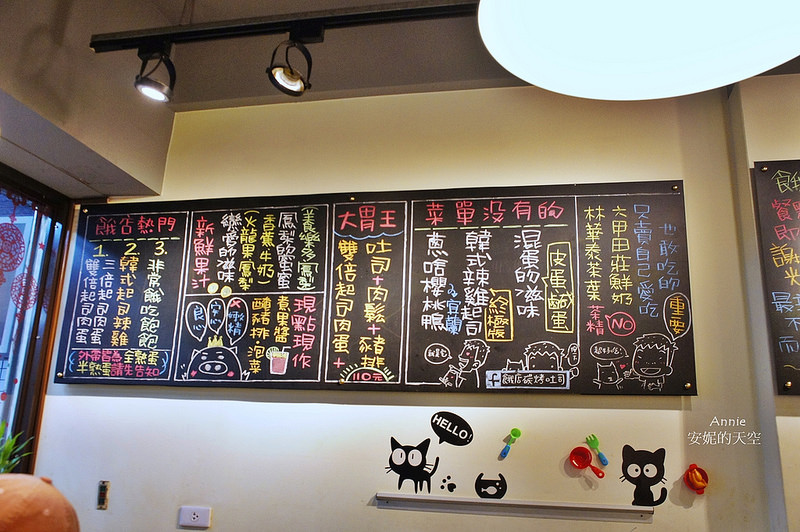 餓店熱門
1.
三倍起司肉蛋
雙倍起司肉蛋
2.
韓式起司辣雞
3.
非常餓吃飽飽
外帶皆為全熟蛋
半熟蛋請先告知
新鮮果汁
戀愛的滋味
火龍果鳳梨
香蕉牛奶
鳳梨蜜蜜
美樂多鳳梨
良心
安心
不噁精
醃豬排.泡菜
煮果醬
現點現作
大胃王
吐司+肉鬆+豬排
雙倍起司肉蛋+
110元
菜單没有的
蔥嗆櫻桃鴨
宜蘭
韓式辣雞起司
終極版
混蛋的滋味
皮蛋鹹蛋
餓店碳烤吐司
林華泰茶葉
茶精
NO
六甲田莊鮮奶
只賣自己愛吃
也敢吃的
重要
HELLO!
Annie
安妮的天空